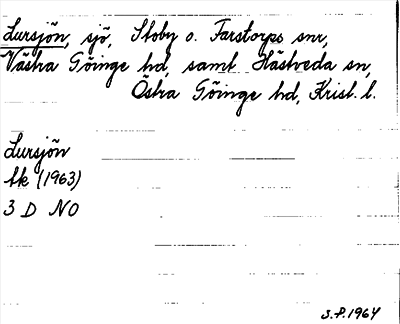 Lursjön, sjö, Stoby o. Farstorps snr,
Västra Göinge hd, samt Hästveda sn,
Östra Göinge hd, Krist. l.
Lursjön
tk (1963)
3 D NO
S.P. 1964